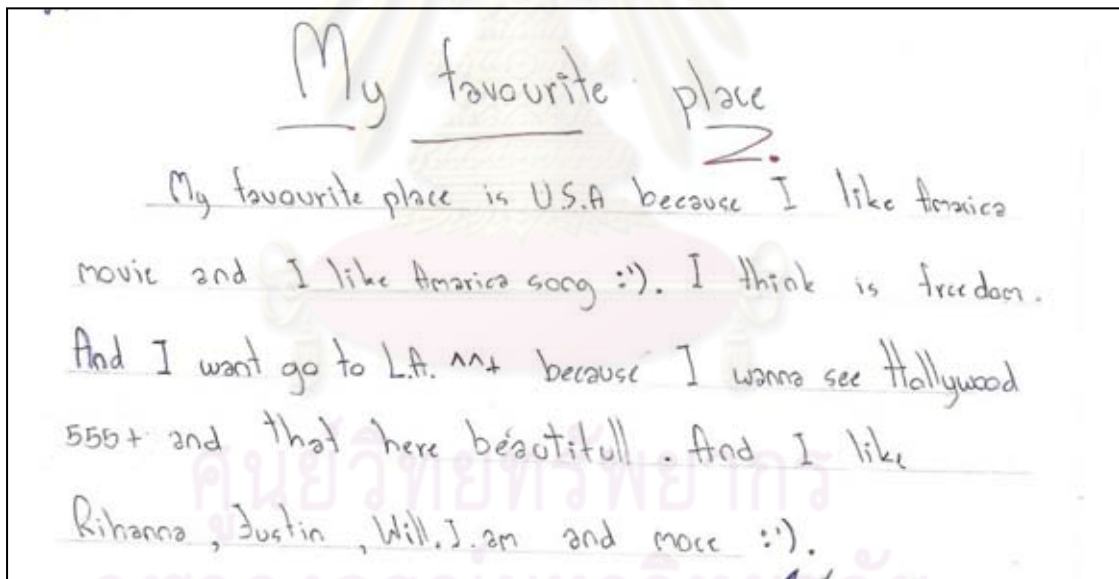 My favourite place
2.
My favourite place is U.S.A because I like Amarica
movie and I like Amarica song :'). I think is freedom.
And I want go to L.A. ^^+ because I wanna see Hollywood
555+ and that here beautifull. And I like
Rihanna, Justin, Will.I.am and more :').
ศูนย์วิทยทรัพยากร
จุฬาลงกรณ์มหาวิทยาลัย